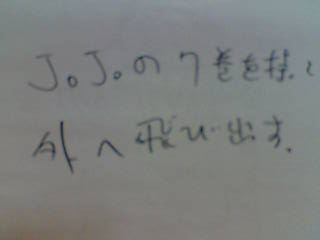 J。J。の7巻を持って
外へ飛び出す.